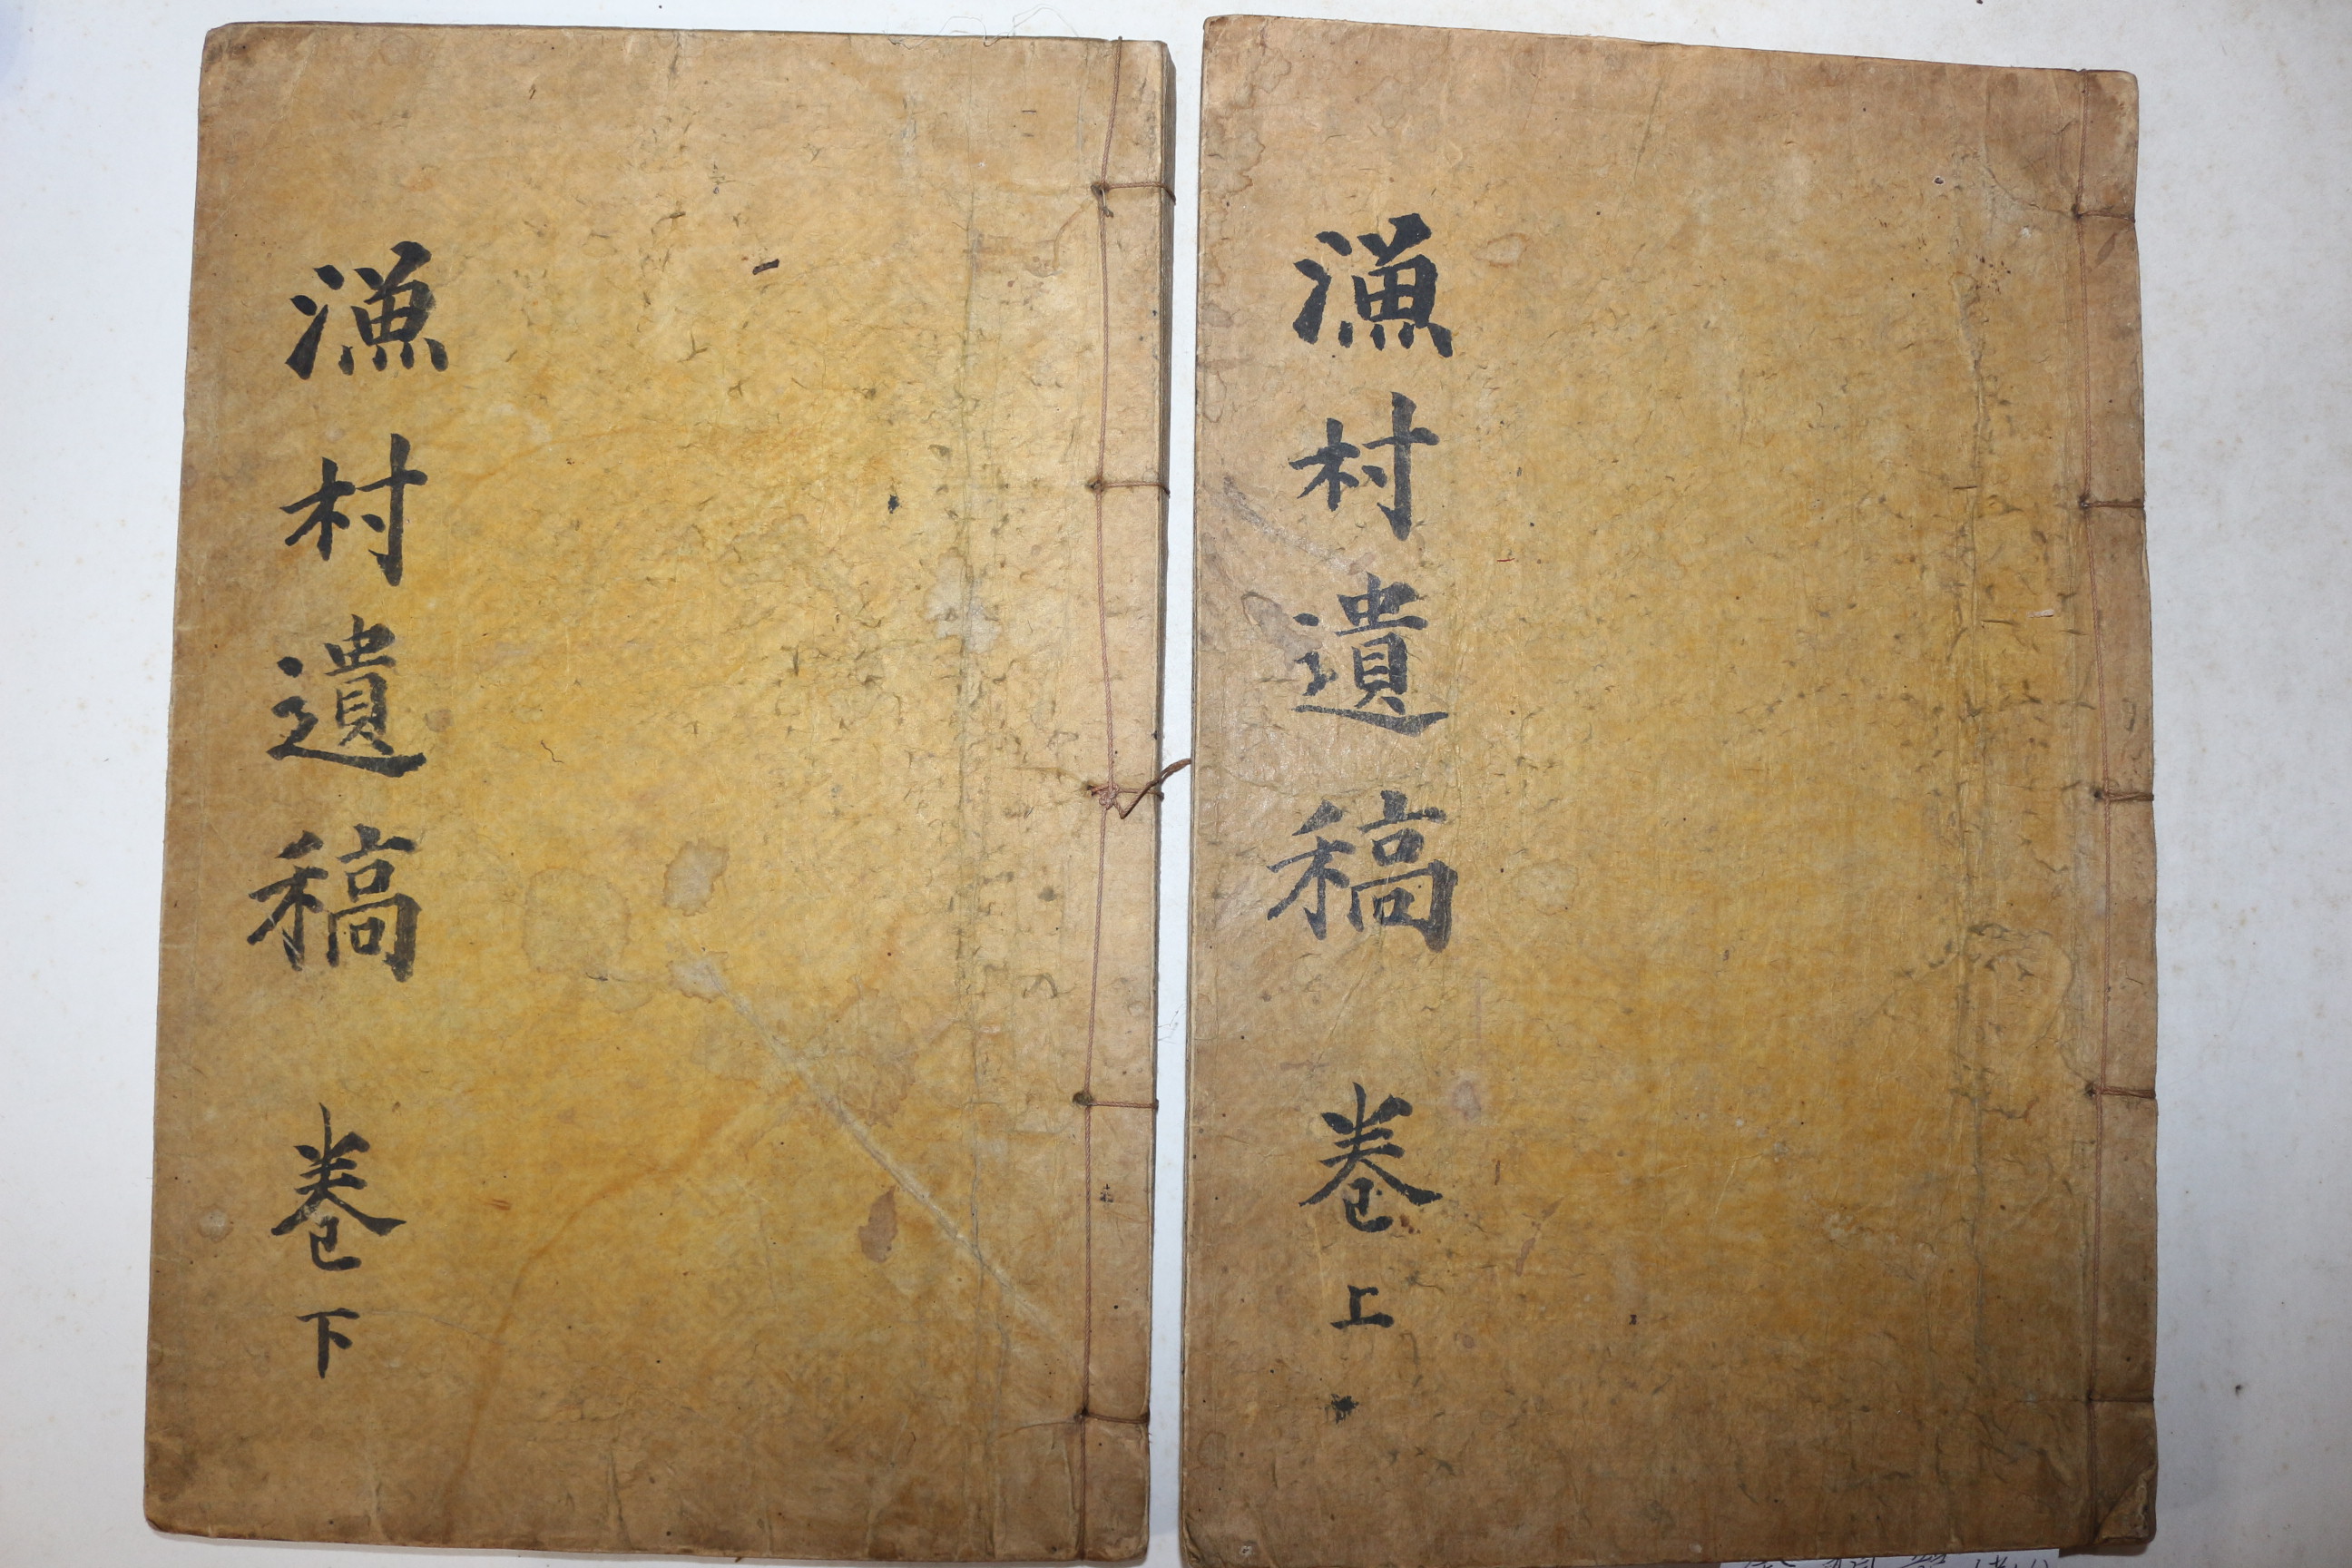 漁村遺稿 巻上
漁村遺稿 巻下